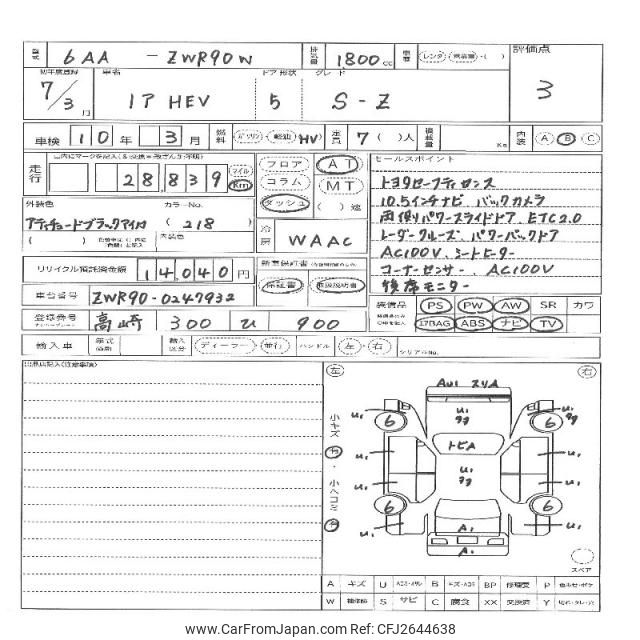 型式 6AA - ZWR90W 排気量 1800cc 車歴 レンタ・教習車・( ) 評価点
初年度登録 7/3月 車名 1P HEV ドア形状 5 グレード S-Z 3
車検 10年 3月 燃料 ガソリン・軽油 HV 定員 7( )人 積載量 Kg 内装 A B C
走行 28,839 マイル Km フロア コラム ダッシュ AT MT ( )速
セールスポイント
トヨタセーフティセンス
10.5インチナビ バックカメラ
両側パワースライドドア ETC2.0
レーダークルーズ パワーバックドア
AC100V シートヒーター
コーナーセンサー AC100V
後席モニター
外装色 カラーNo.
アティチュードブラックマイカ (218)
内装色
冷房 WAAC
リサイクル預託済金額 14,040円 新車保証書 保証書 取扱説明書
車台番号 ZWR90-0247932
装備品 PS PW AW SR カワ
エアBAG ABS ナビ TV
登録番号 ナンバープレート 高崎 300 い 900
輸入車 年式 輸入区分 ディーラー・並行 ハンドル 左・右 シリアルNo.
出品店記入(注意事項)
左 右
AW1 スリA
U1 U1 U1
6 6
ヶヶ ヶヶ
小キズ 有・小ヘコミ 有
トビA
U1 U1 U1
ヶヶ
U1 U1
6 6
U1 A1 U1
A1
スペア
A キズ U B BP 修理要 P 色あせ・ボケ
W 補修跡 S サビ C 腐食 XX 交換済 Y 切れ・クレ・穴
www.CarFromJapan.com ID: CFJ2644638